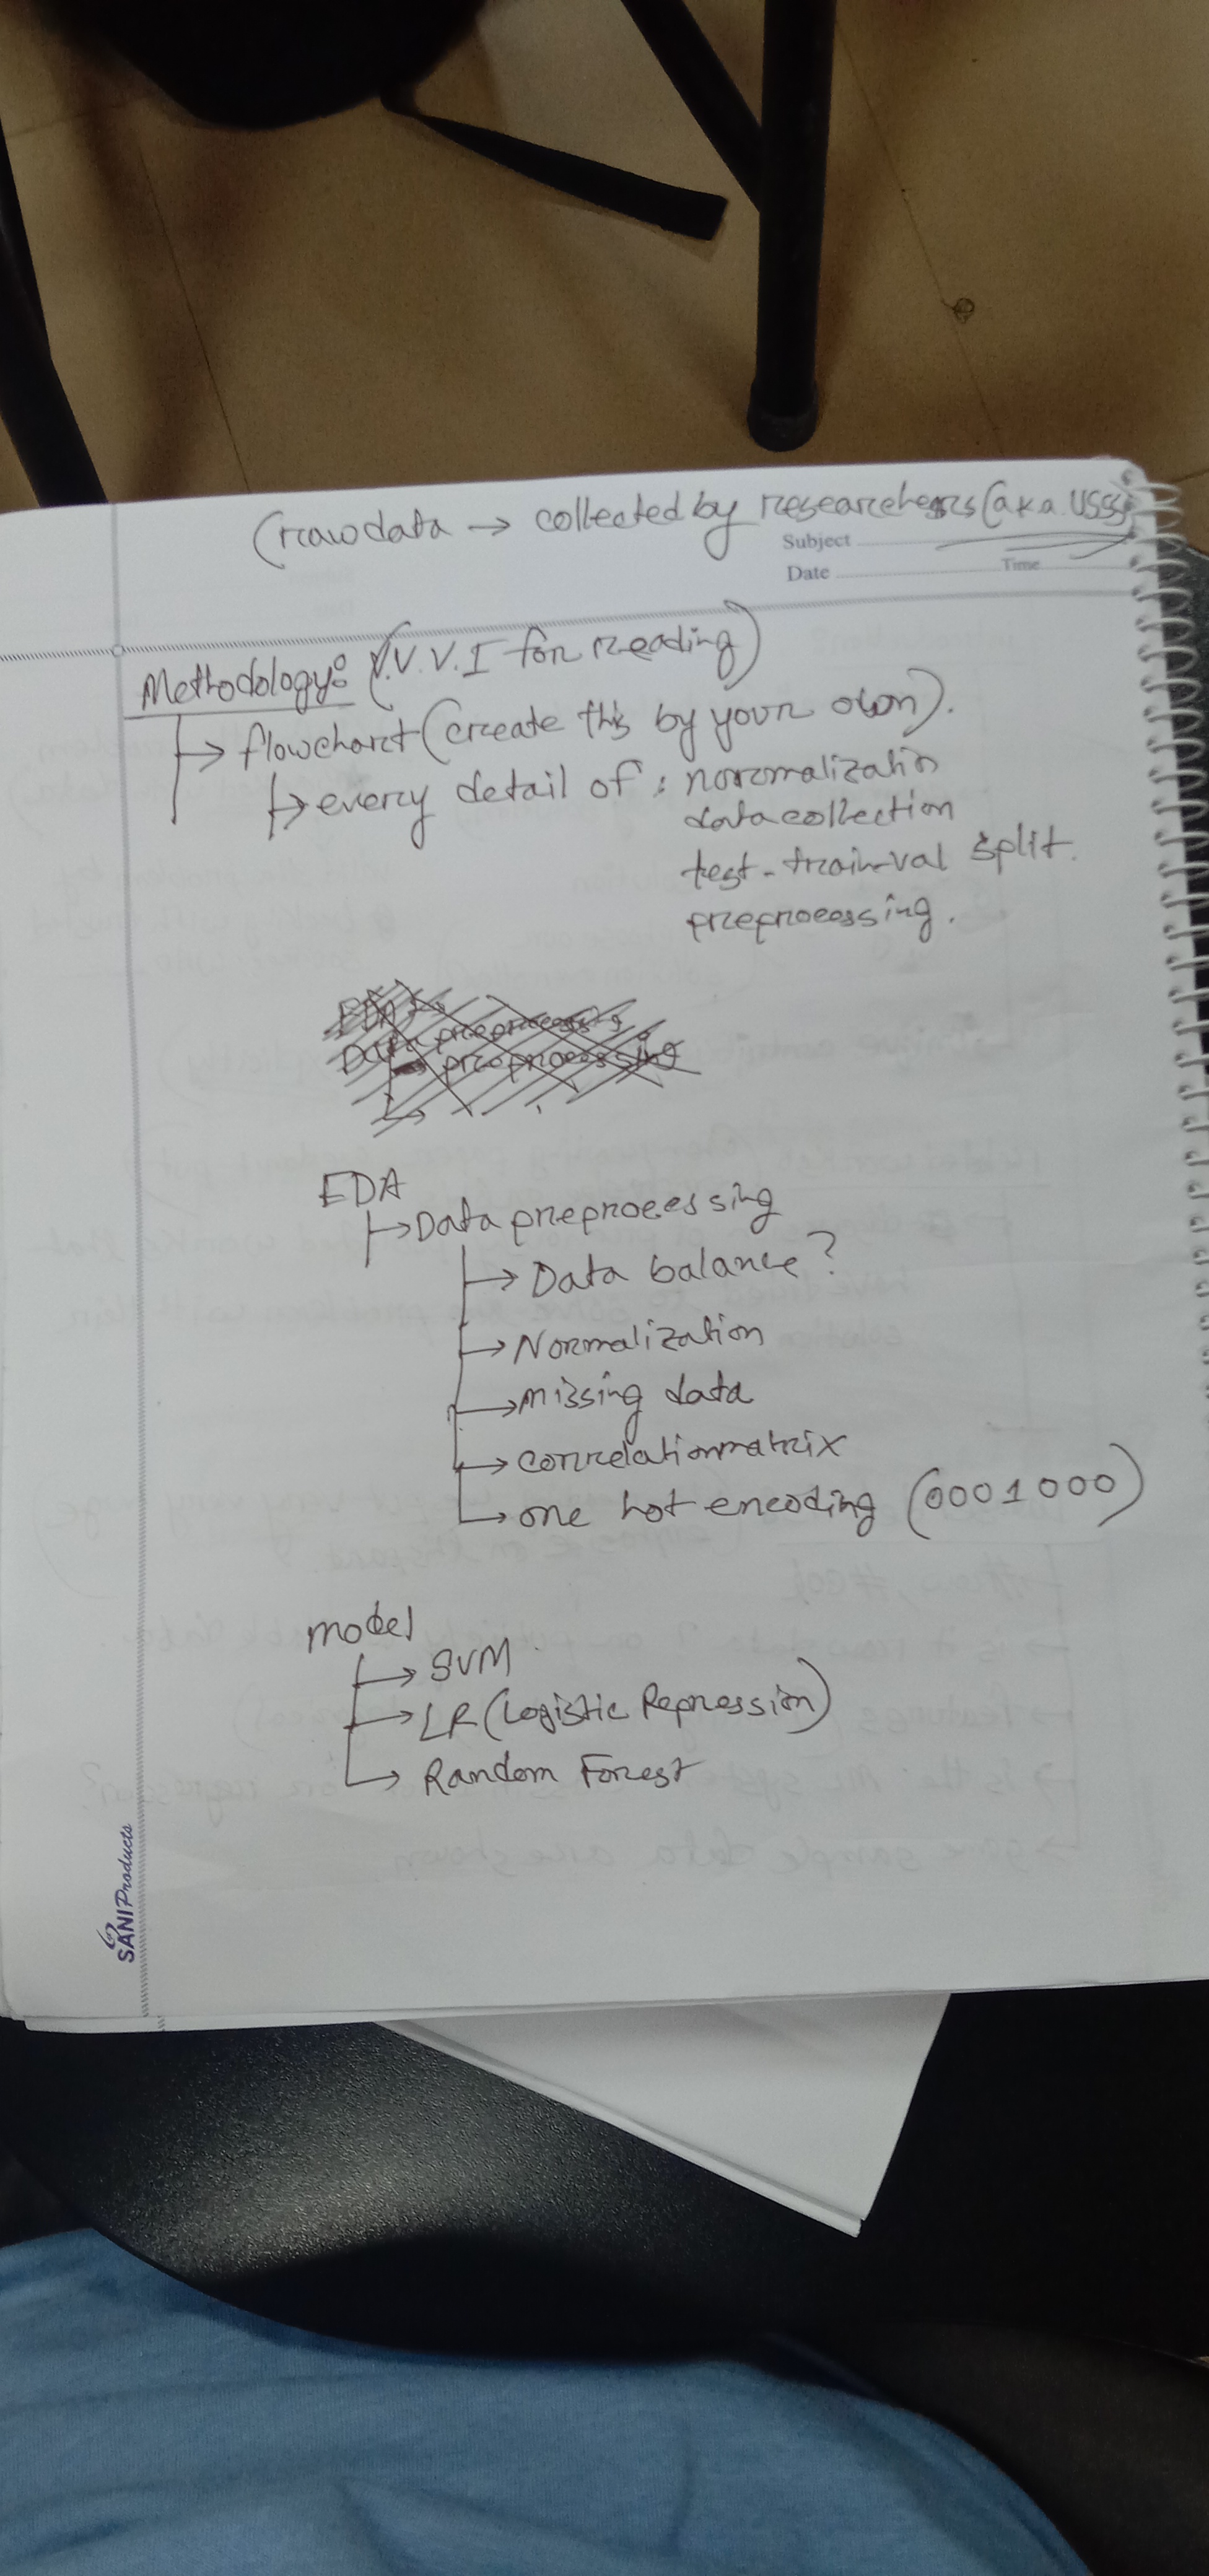 (raw data → collected by researchers (a.k.a. USSS)
Subject
Date
Time
Methodology: (V.V.V.I for reading)
→ flowchart (create this by your own).
→ every detail of : normalizatio
data collection
test-train-val split.
preprocessing.
EDA
Data preprocessing
preprocessing
EDA
→ Data preprocessing
→ Data balance?
→ Normalization
→ missing data
→ correlation matrix
→ one hot encoding (0001000)
model
→ SVM
→ LR (Logistic Repression)
→ Random Forest
SANI Products